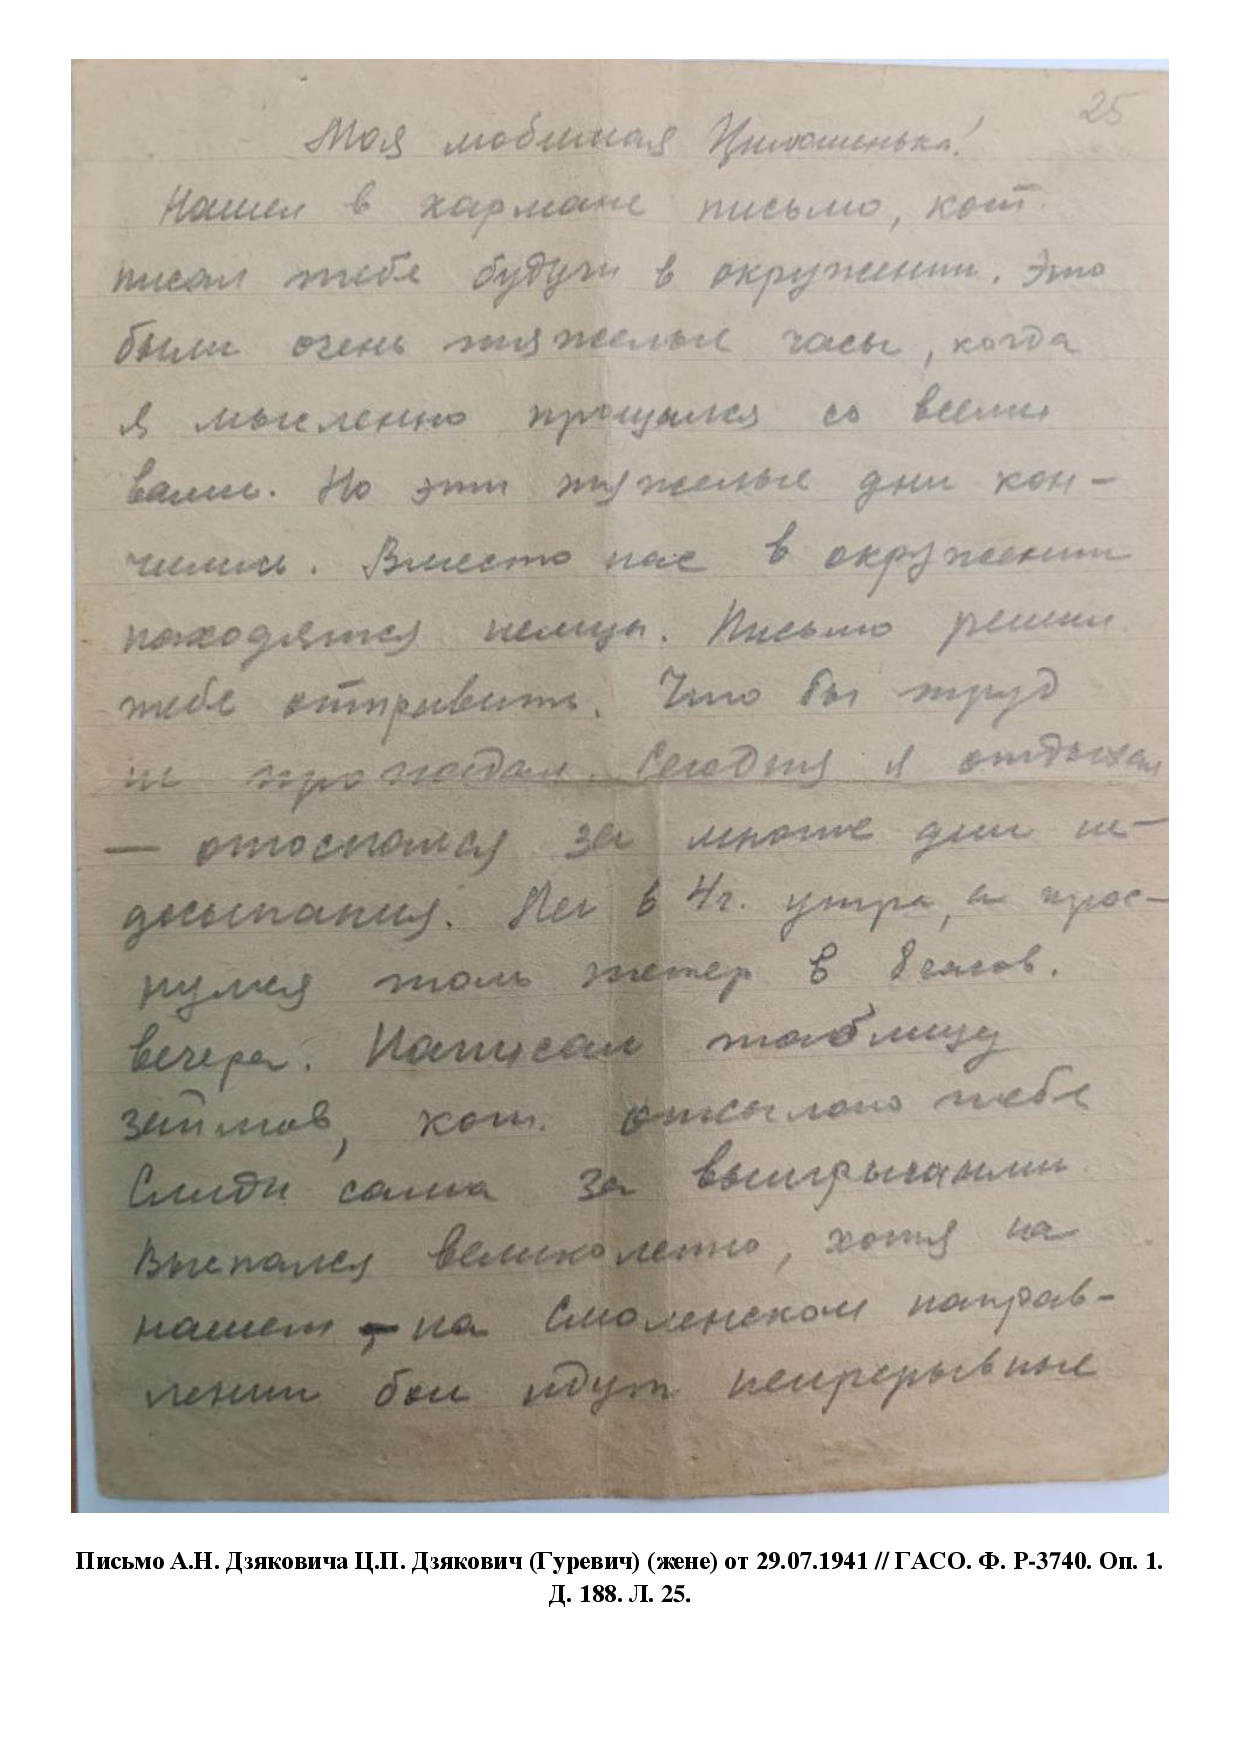 25
Моя любимая Цилюшенька!
Нашел в кармане письмо, кот.
писал тебе будучи в окружении. Это
были очень тяжелые часы, когда
я мысленно прощался со всеми
вами. Но эти тяжелые дни кон-
чились. Вместо нас в окружении
находятся немцы. Письмо решил
тебе отправить. Что бы труд
не пропадал. Сегодня я отдыхал
— отоспался за многие дни не-
досыпания. Лег в 4 ч. утра, а прос-
нулся толь тепер в 8 часов.
вечера. Написал таблицу
займов, кот. отсылаю тебе
Следи сама за выигрышами
Выспался великолепно, хотя на
нашем - на Смоленском направ-
лении бои идут непрерывные
Письмо А.Н. Дзяковича Ц.П. Дзякович (Гуревич) (жене) от 29.07.1941 // ГАСО. Ф. Р-3740. Оп. 1.
Д. 188. Л. 25.